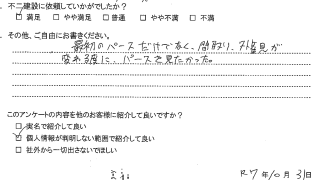 不二建設に依頼していかがでしたか？
□ 満足 □ やや満足 □ 普通 □ やや不満 □ 不満
その他、ご自由にお書きください。
最初のパースだけでなく、間取り、外見が
変わる度に、パースを見たかった。
このアンケートの内容を他のお客様に紹介して良いですか？
□ 実名で紹介して良い
□ 個人情報が判明しない範囲で紹介して良い
□ 社外から一切出さないでほしい
R7年10月31日